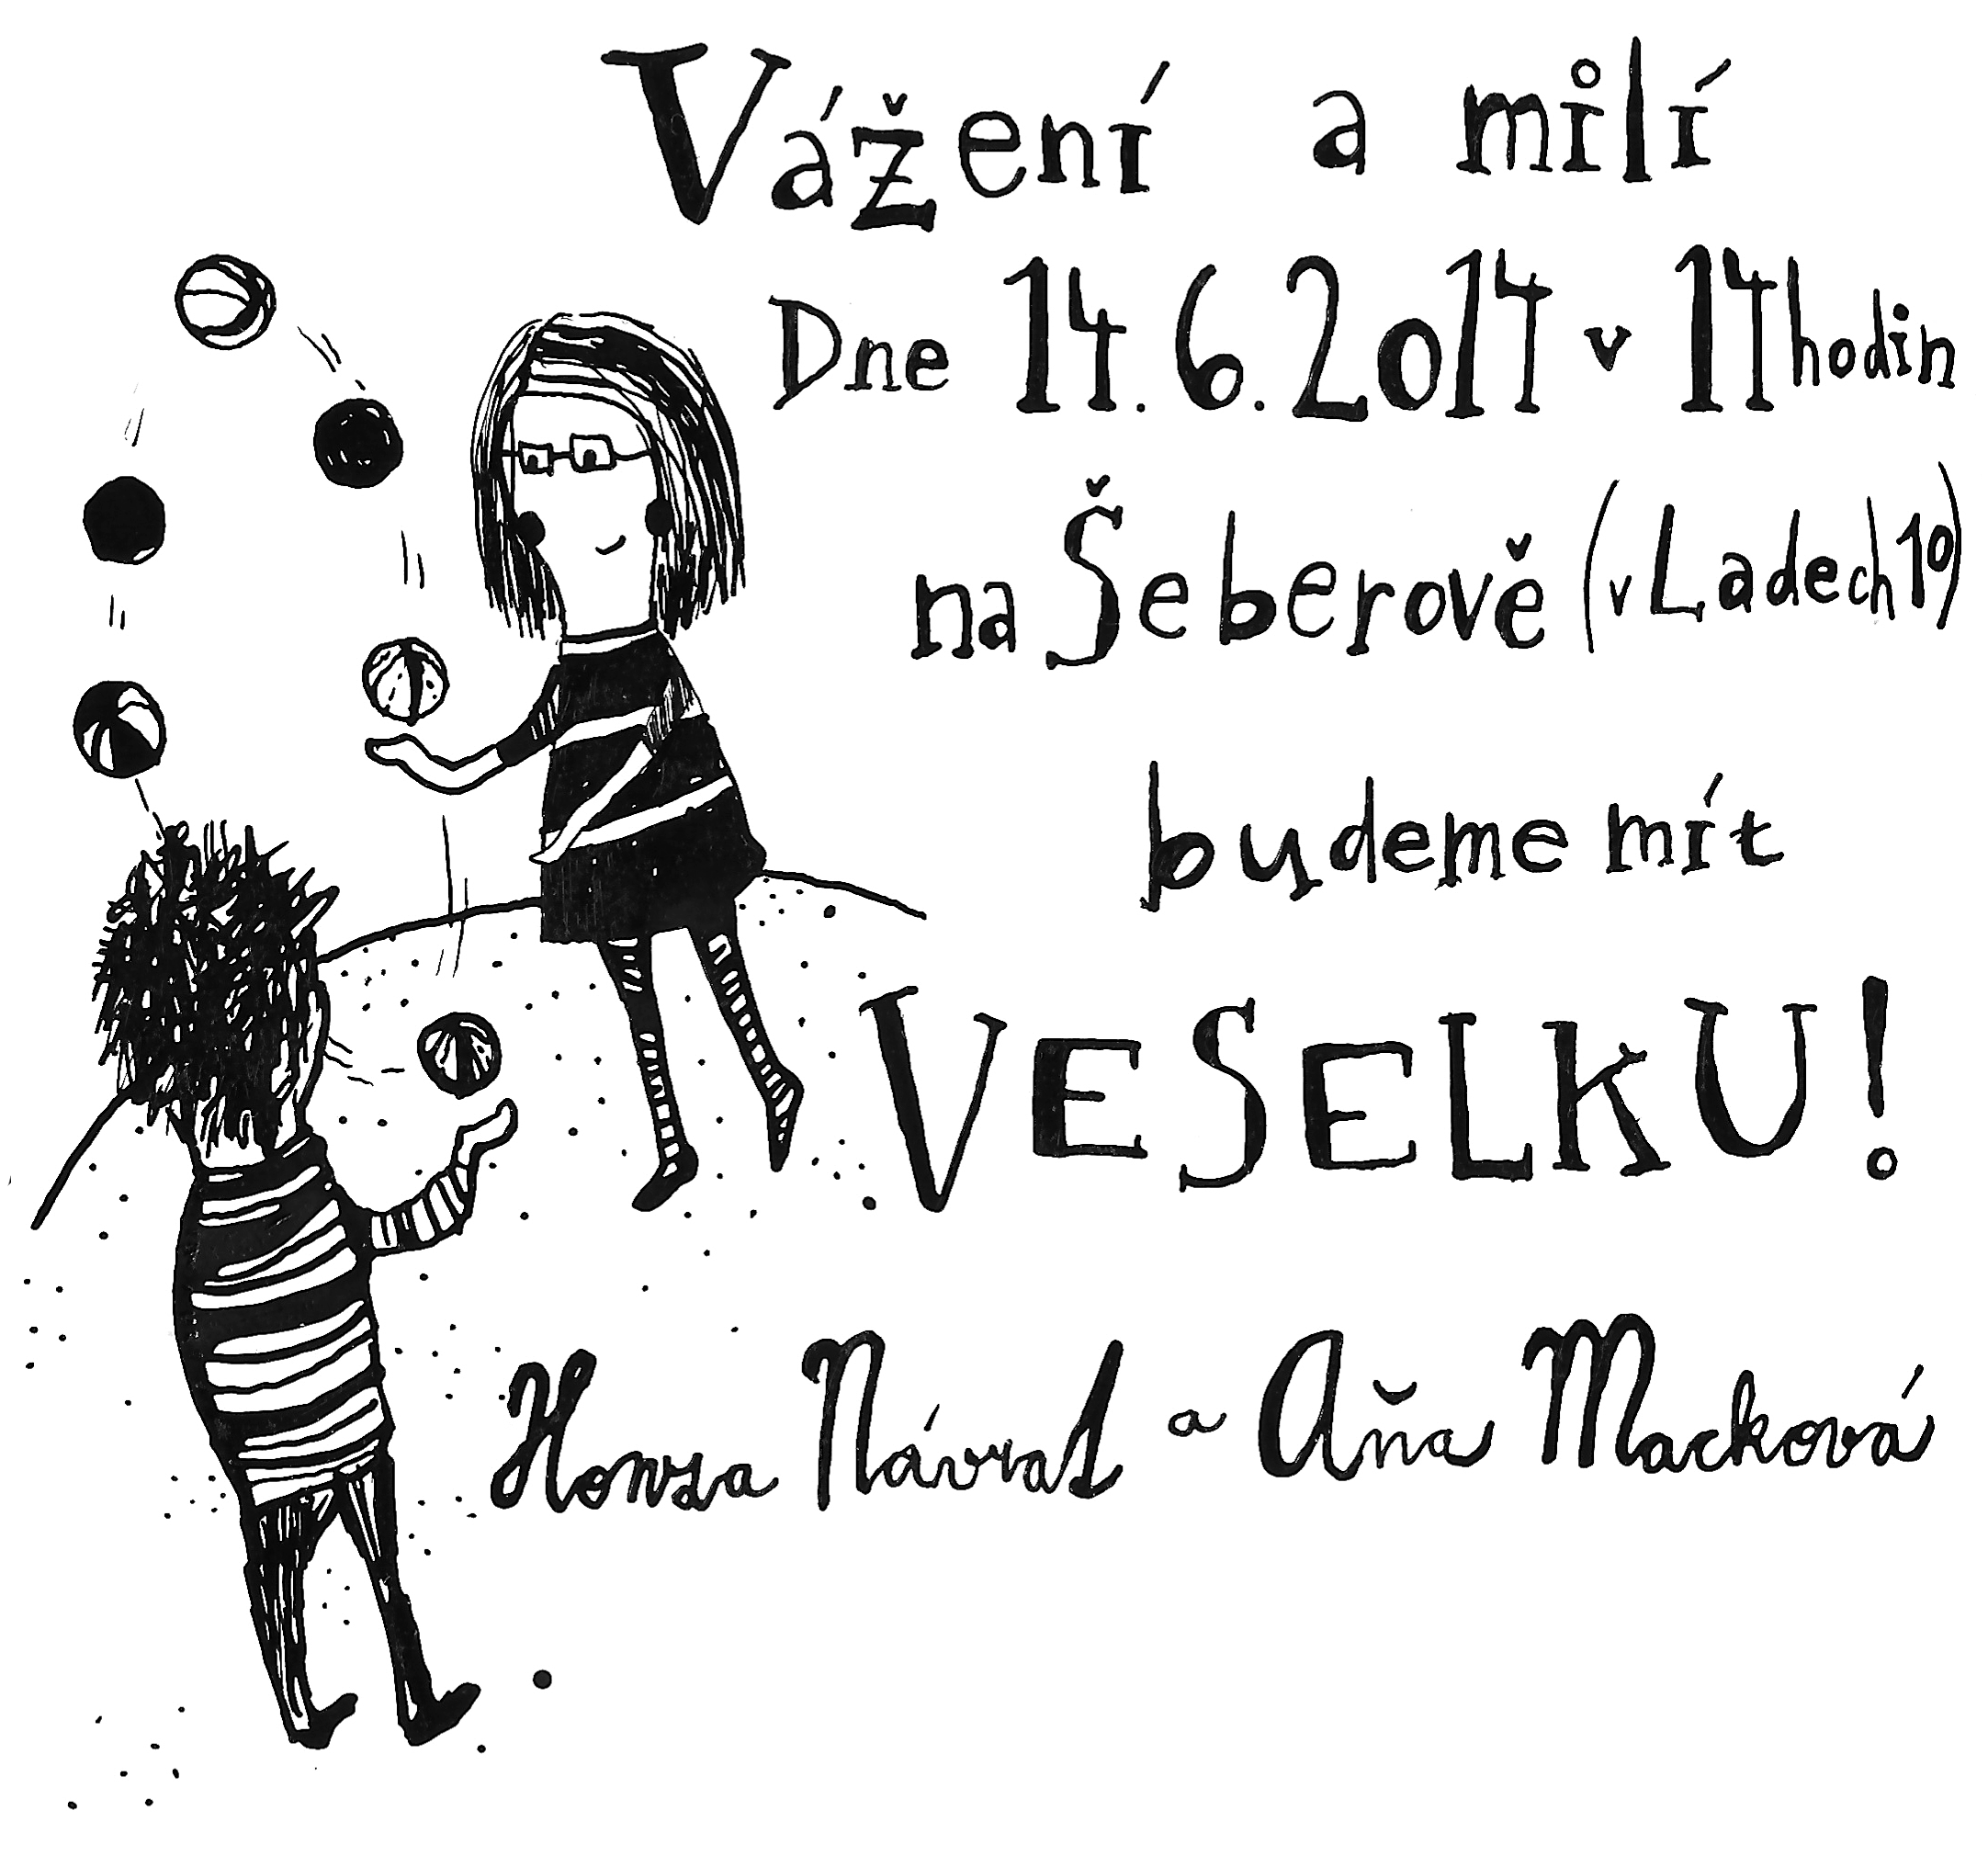 Vážení a milí
Dne 14.6.2014 v 14hodin
na Šeberově (v Ladech 10)
budeme mít
VESELKU!
Honza Návrat a Aňa Macková